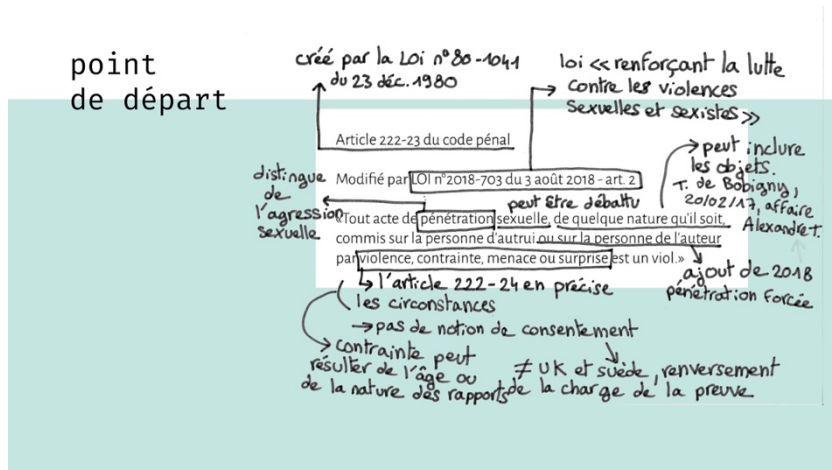 point
de départ
créé par la Loi n°80-1041
du 23 déc. 1980
loi << renforçant la lutte
contre les violences
sexuelles et sexistes >>
Article 222-23 du code pénal
peut inclure
les objets.
T. de Bobigny,
20/02/17, affaire
Alexandre T.
distingue
de
l'agression
sexuelle
Modifié par LOI n°2018-703 du 3 août 2018 - art. 2
peut être débattu
«Tout acte de pénétration sexuelle, de quelque nature qu'il soit,
commis sur la personne d'autrui ou sur la personne de l'auteur
par violence, contrainte, menace ou surprise est un viol.»
ajout de 2018
pénétration forcée
l'article 222-24 en précise
les circonstances
→ pas de notion de consentement
contrainte peut
résulter de l'âge ou
de la nature des rapports
≠ UK et suède, renversement
de la charge de la preuve